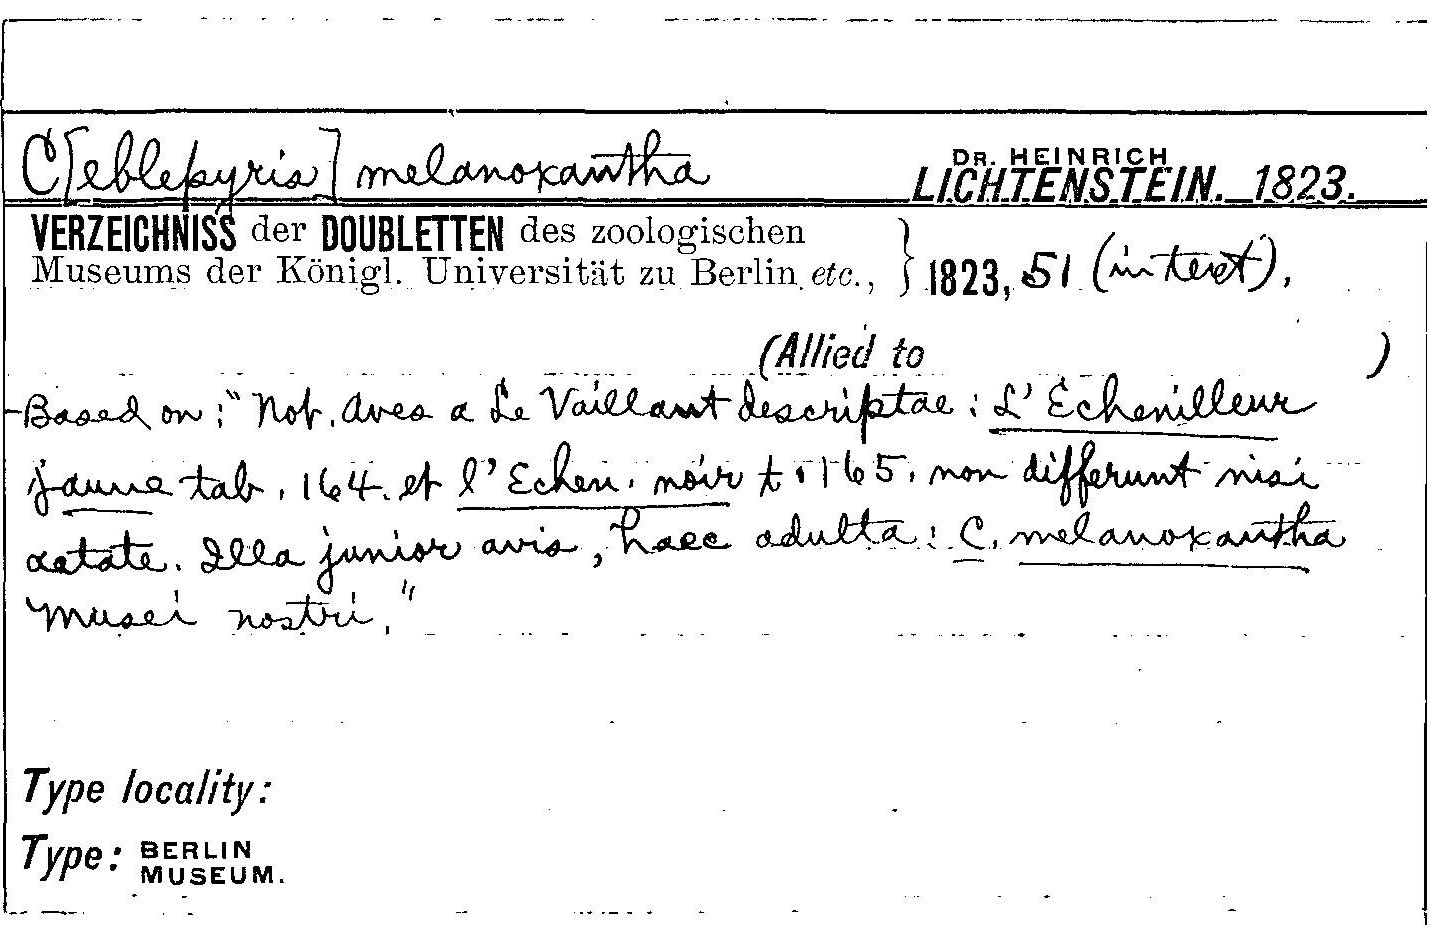 C[eblepyris] melanoxantha
DR. HEINRICH
LICHTENSTEIN. 1823.
VERZEICHNISS der DOUBLETTEN des zoologischen
Museums der Königl. Universität zu Berlin etc.,
} 1823, 51 (in text).
(Allied to )
Based on: "Not. Aves a Le Vaillant descriptae: L'Echenilleur
jaune tab. 164. et l'Echen. noir t. 165. non differunt nisi
aetate. Illa junior avis, haec adulta: C. melanoxantha
Musei nostri."
Type locality:
Type: BERLIN
MUSEUM.